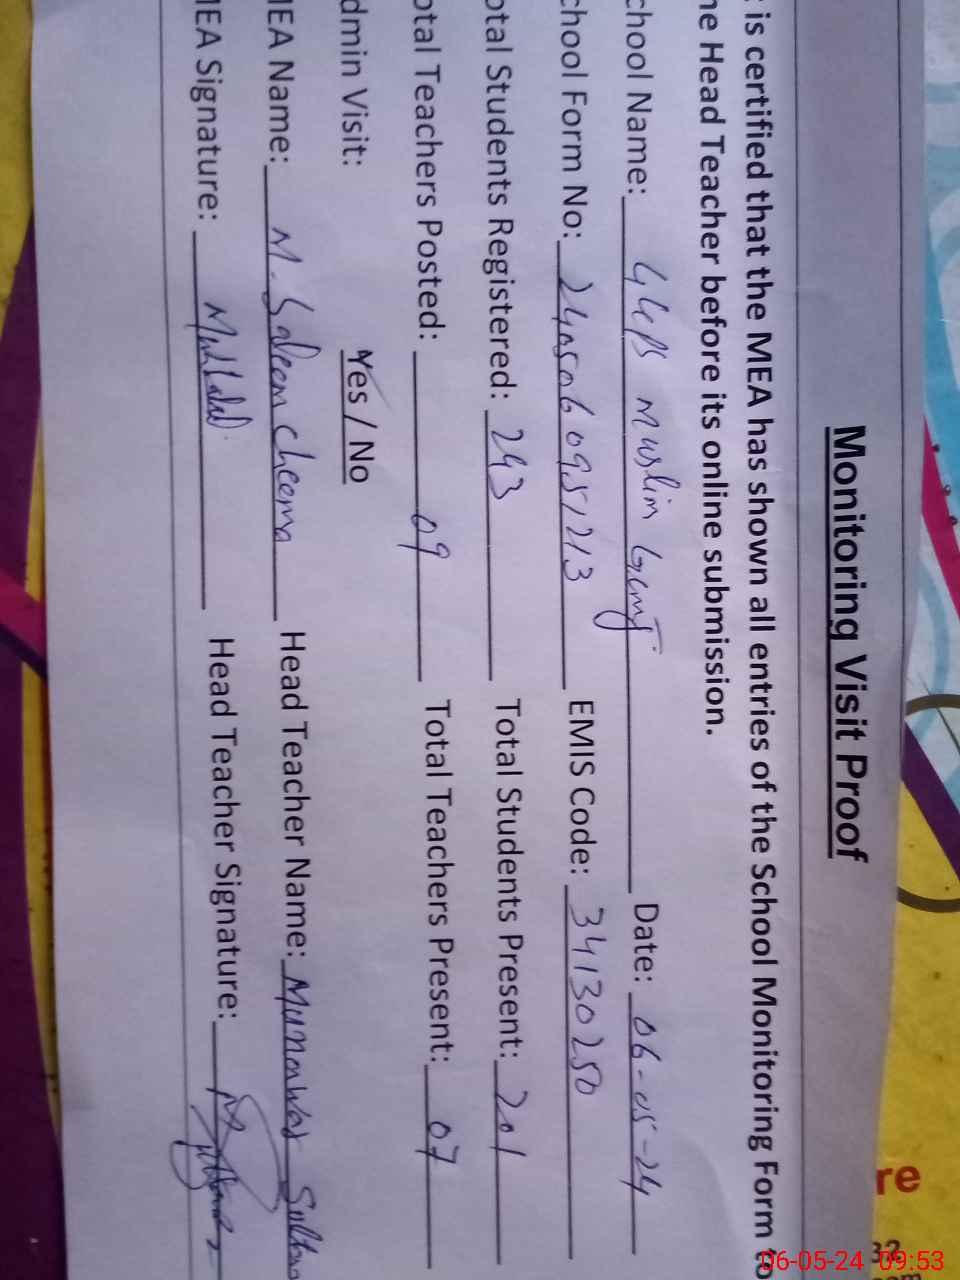 Monitoring Visit Proof
is certified that the MEA has shown all entries of the School Monitoring Form to
he Head Teacher before its online submission.
chool Name: GGPS Muslim Gunj Date: 06-05-24
chool Form No: 2405060951213 EMIS Code: 34130250
otal Students Registered: 243 Total Students Present: 201
otal Teachers Posted: 09 Total Teachers Present: 07
dmin Visit: Yes / No
MEA Name: M. Saleem Cheema Head Teacher Name: Munawar Sultana
MEA Signature: Head Teacher Signature:
re
32
06-05-24 09:53